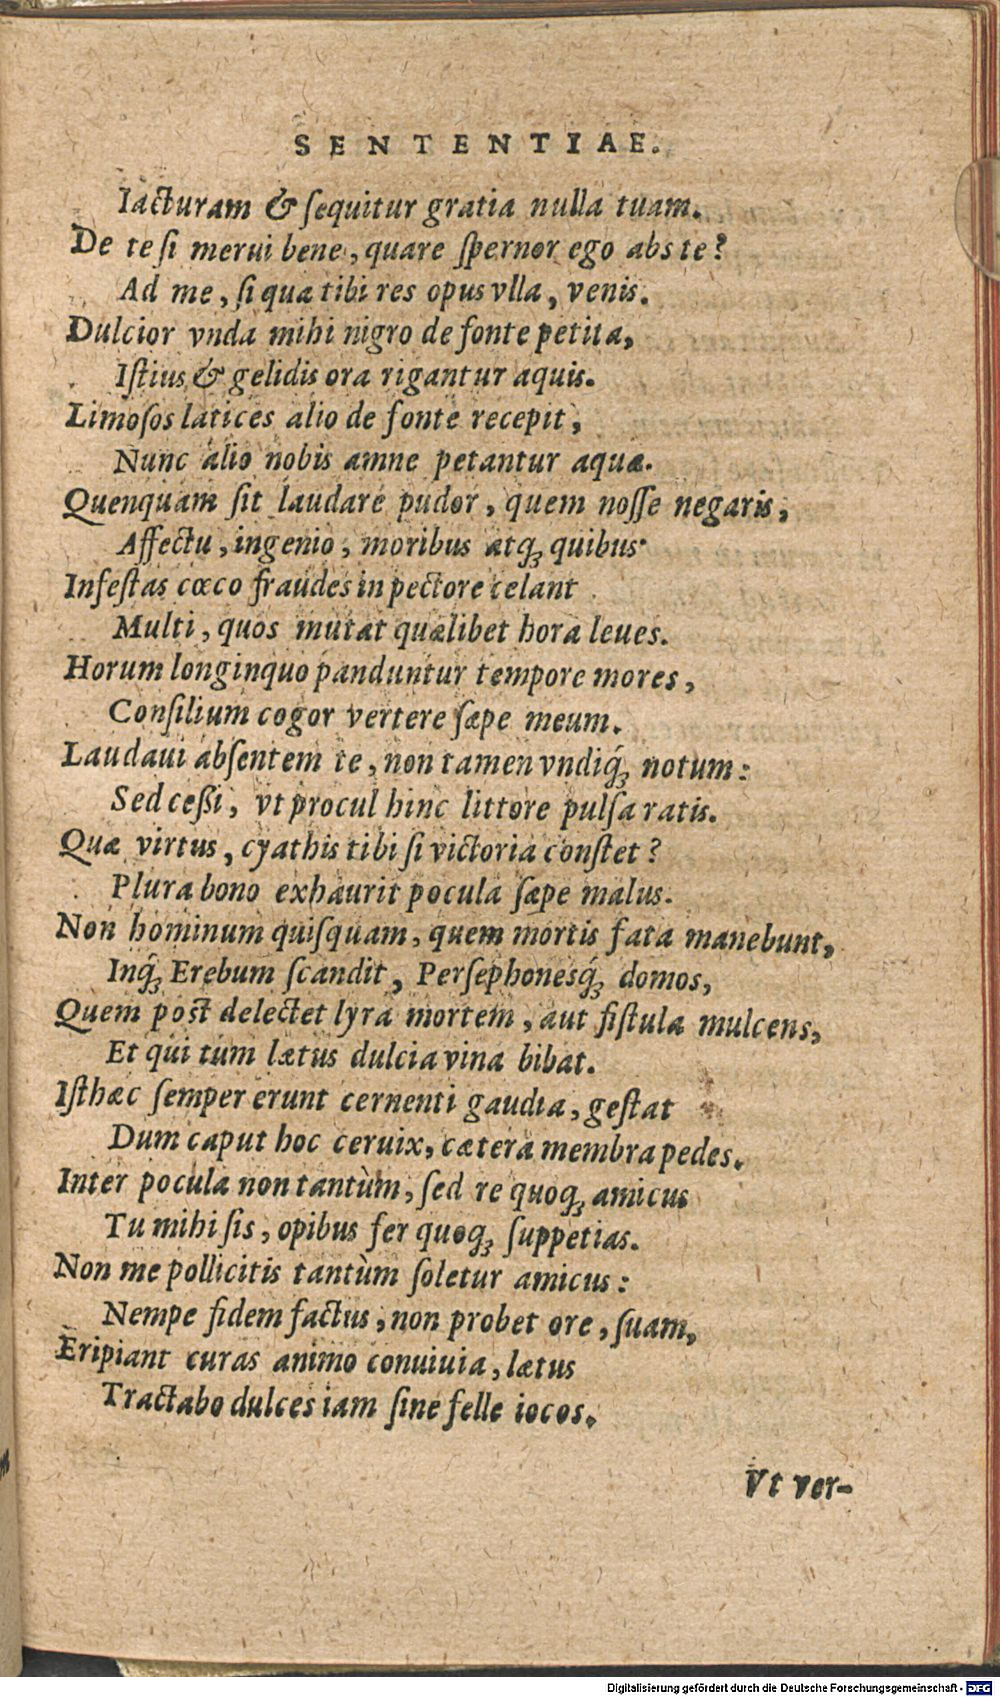 SENTENTIAE.
Iacturam & ſequitur gratia nulla tuam.
De te ſi merui bene, quare ſpernor ego abs te?
Ad me, ſi qua tibi res opus vlla, venis.
Dulcior vnda mihi nigro de fonte petita,
Iſtius & gelidis ora rigantur aquis.
Limoſos latices alio de fonte recepit,
Nunc alio nobis amne petantur aquæ.
Quenquam ſit laudare pudor, quem noſſe negaris,
Affectu, ingenio, moribus atq; quibus.
Infeſtas cœco fraudes in pectore celant
Multi, quos mutat quælibet hora leues.
Horum longinquo panduntur tempore mores,
Conſilium cogor vertere ſæpe meum.
Laudaui abſentem te, non tamen vndiq́; notum:
Sed ceßi, vt procul hinc littore pulſa ratis.
Quæ virtus, cyathis tibi ſi victoria conſtet?
Plura bono exhaurit pocula ſæpe malus.
Non hominum quiſquam, quem mortis fata manebunt,
Inq́; Erebum ſcandit, Perſephonesq́; domos,
Quem poſt delectet lyra mortem, aut fiſtula mulcens,
Et qui tum lætus dulcia vina bibat.
Iſthæc ſemper erunt cernenti gaudia, geſtat
Dum caput hoc ceruix, cætera membra pedes.
Inter pocula non tantùm, ſed re quoq; amicus
Tu mihi ſis, opibus fer quoq; ſuppetias.
Non me pollicitis tantùm ſoletur amicus:
Nempe fidem factus, non probet ore, ſuam,
Eripiant curas animo conuiuia, lætus
Tractabo dulces iam ſine felle iocos.
Vt ver-
Digitalisierung gefördert durch die Deutsche Forschungsgemeinschaft - DFG